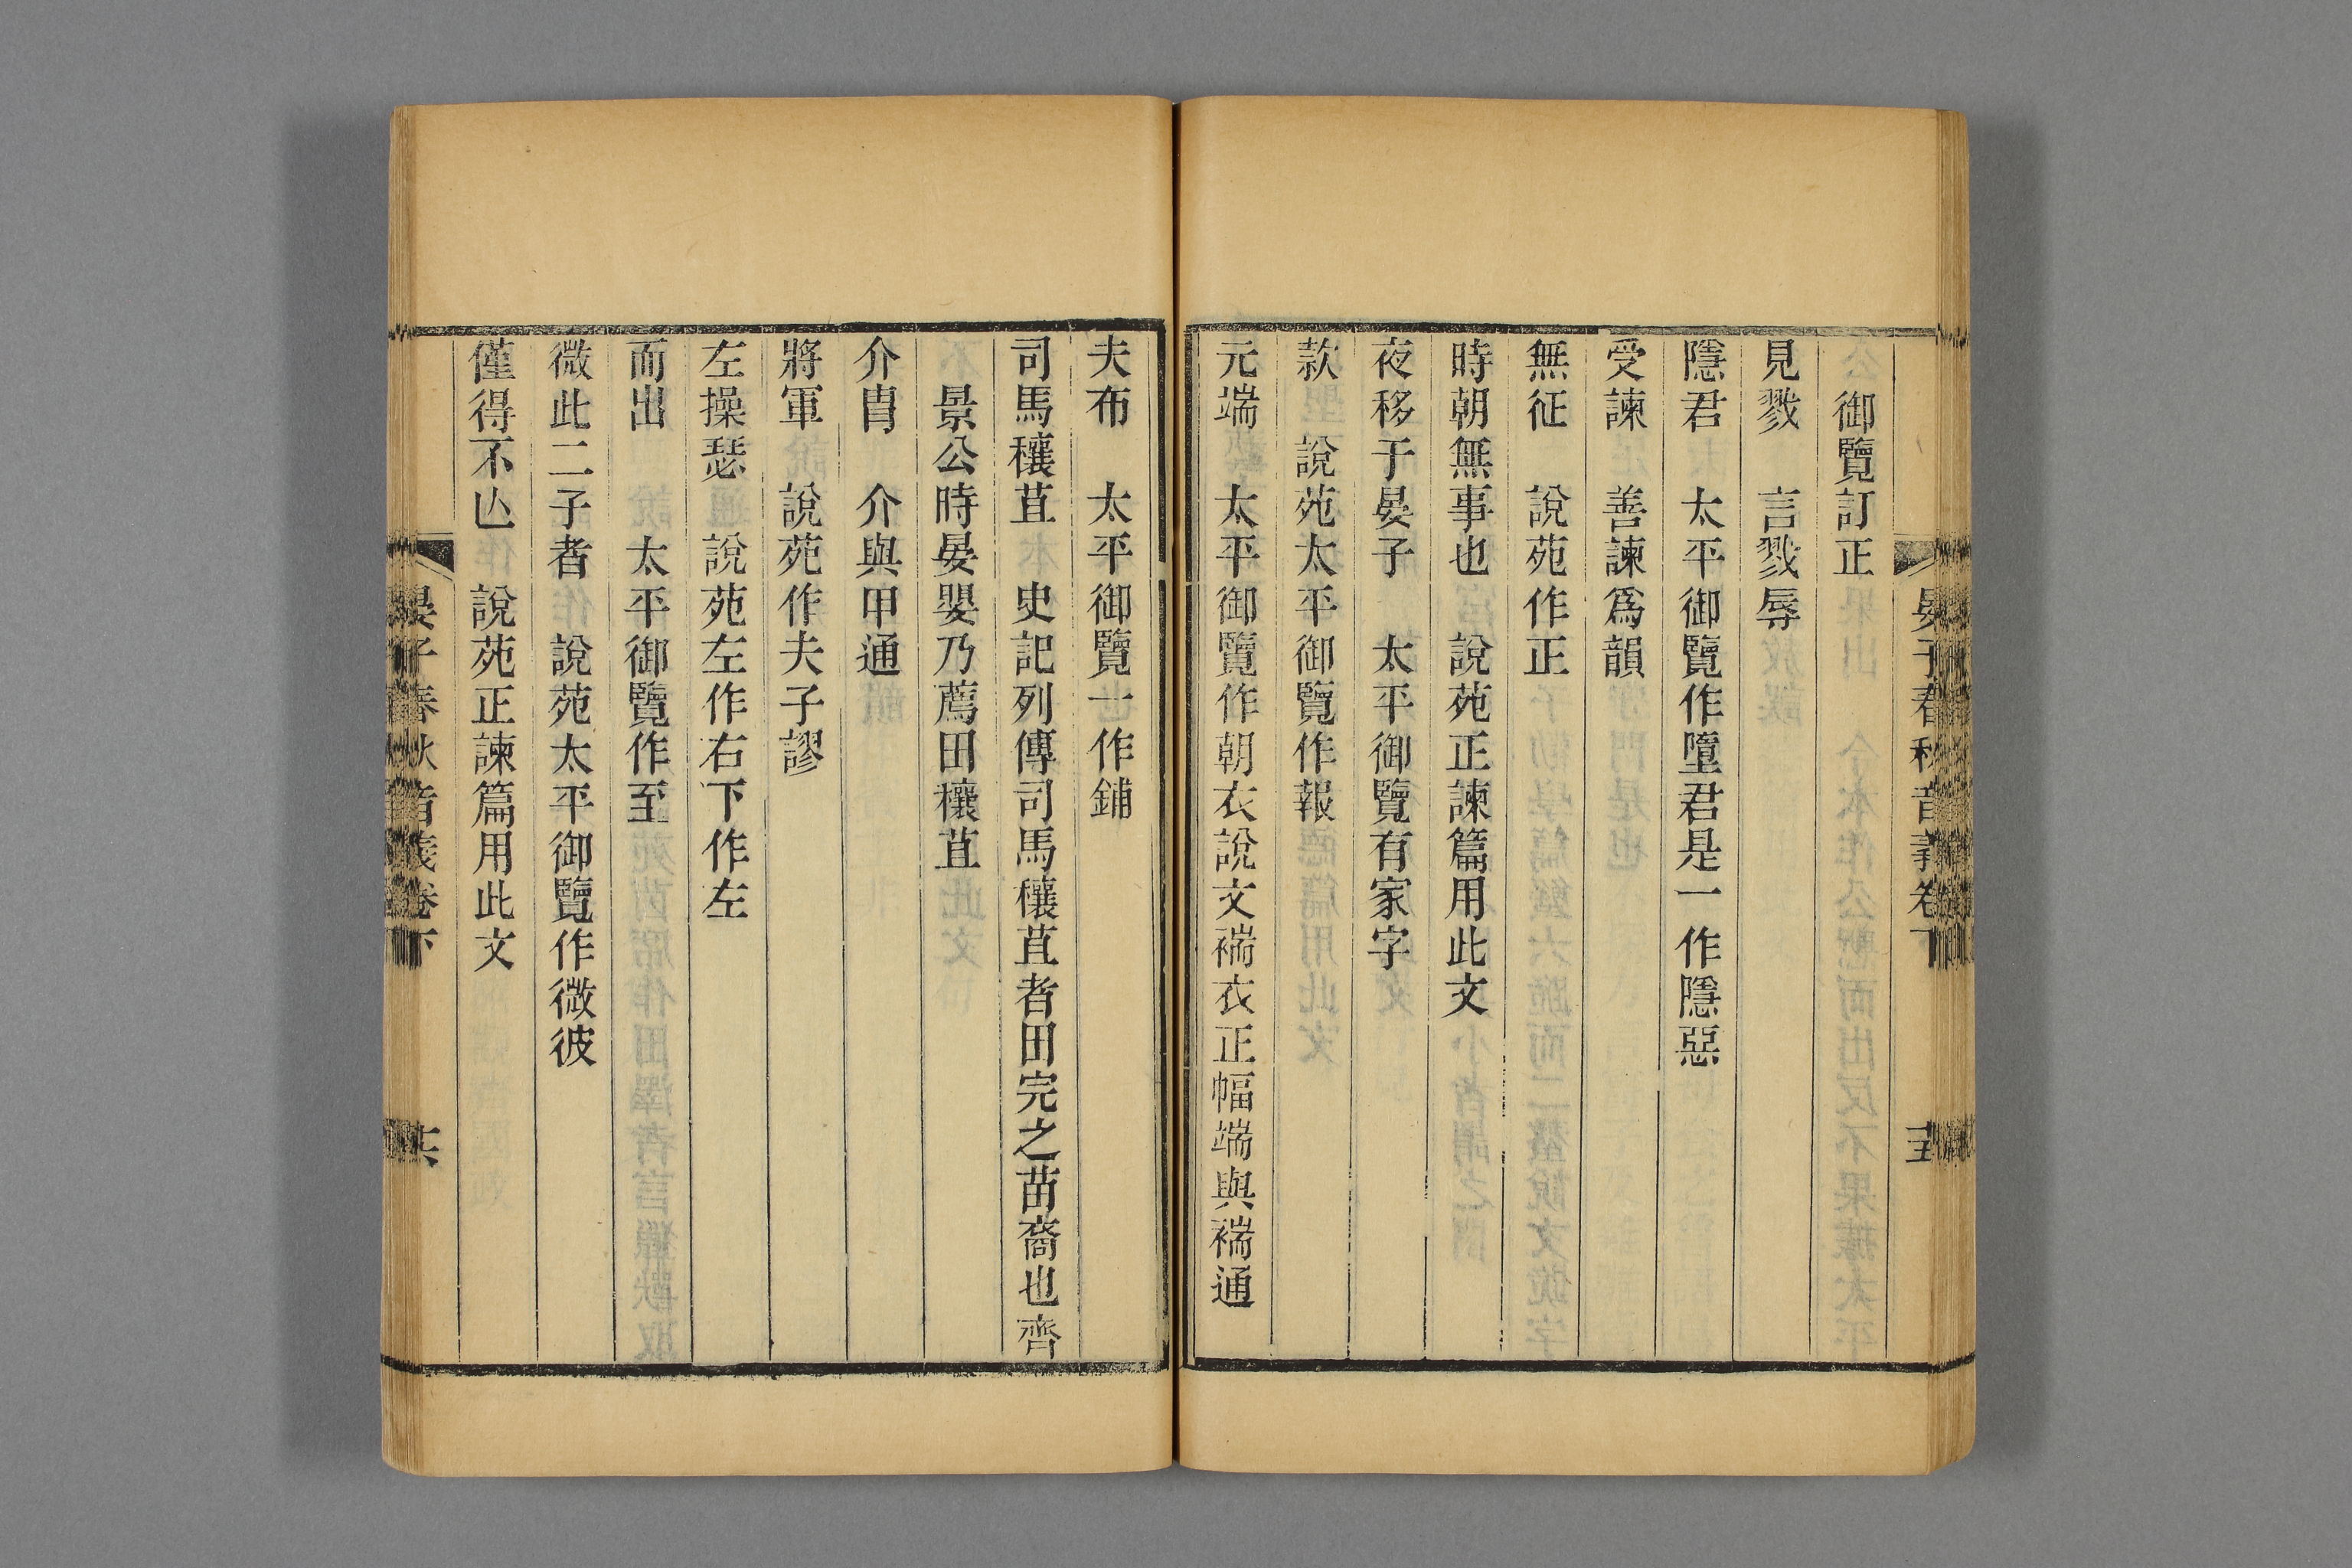 御覽訂正
見戮　言戮辱
隱君　太平御覽作墮君是一作隱惡
受諫　善諫爲韻
無征　說苑作正
時朝無事也　說苑正諫篇用此文
夜移于晏子　太平御覽有家字
款　說苑太平御覽作報
元端　太平御覽作朝衣說文褍衣正幅端與褍通
夫布　太平御覽一作鋪
司馬穰苴　史記列傳司馬穰苴者田完之苗裔也齊
景公時晏嬰乃薦田穰苴
介冑　介與甲通
將軍　說苑作夫子謬
左操瑟　說苑左作右下作左
而出　太平御覽作至
微此二子者　說苑太平御覽作微彼
僅得不亾　說苑正諫篇用此文
晏子春秋音義卷下